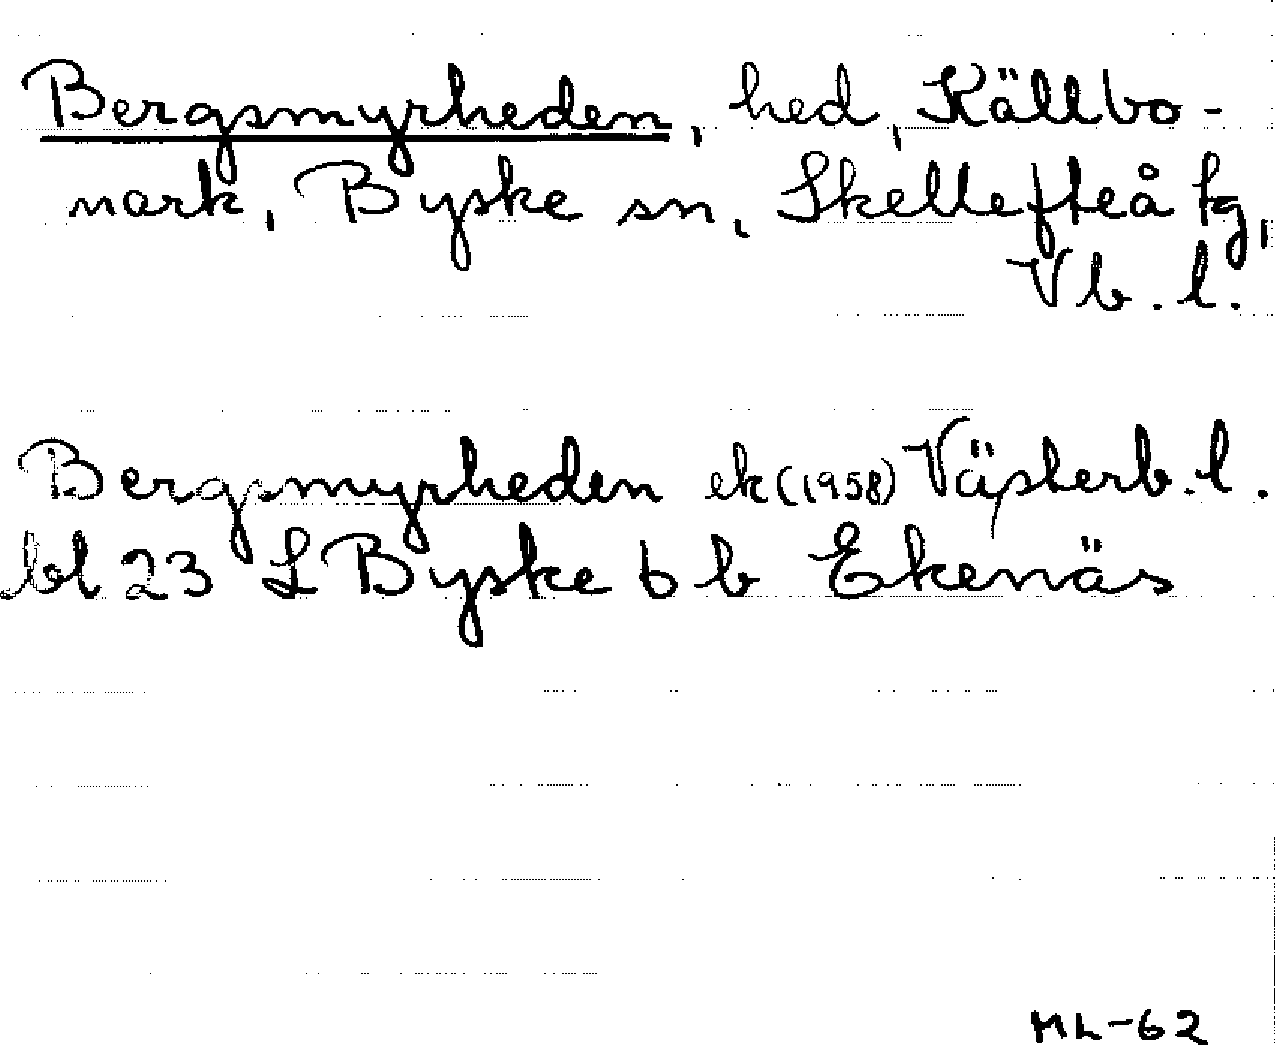 Bergsmyrheden, hed, Källbo-
mark, Byske sn, Skellefteå tg,
Vb. l.
Bergsmyrheden ek (1958) Västerb. l.
bl 23 L Byske b b Ekenäs
ML-62